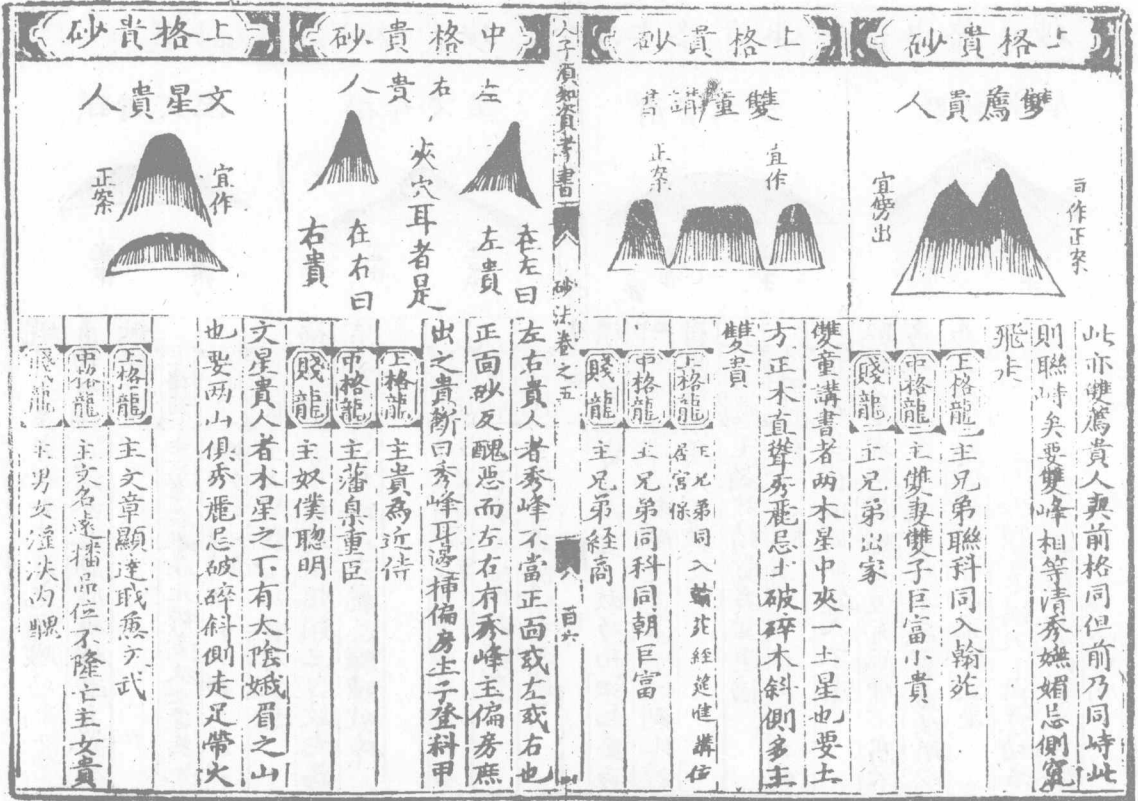 上格貴砂
雙薦貴人
宜作正案
宜傍出
此亦雙薦貴人與前格同但前乃同峙此
則聯峙矣要雙峰相等清秀嫵媚忌側窺
飛走
上格龍 主兄弟聯科同入翰苑
中格龍 主雙妻雙子巨富小貴
賤龍 主兄弟出家
上格貴砂
雙童講書
宜作
正案
雙童講書者兩木星中夾一土星也要土
方正木直聳秀麗忌土破碎木斜側多主
雙貴
上格龍 主兄弟同入翰苑經筵進講位
居宮保
中格龍 主兄弟同科同朝巨富
賤龍 主兄弟経商
人子須知資孝書
砂法卷之五
百六
中格貴砂
左右貴人
在左曰
左貴
夾穴耳者是
在右曰
右貴
左右貴人者秀峰不當正面或左或右也
正面砂反醜惡而左右有秀峰主偏房庶
出之貴斷曰秀峰耳邊揷偏房生子登科甲
上格龍 主貴為近侍
中格龍 主藩臬重臣
賤龍 主奴僕聰明
上格貴砂
文星貴人
宜作
正案
文星貴人者木星之下有太陰娥眉之山
也要兩山俱秀麗忌破碎斜側走足帶火
上格龍 主文章顯達職兼文武
中格龍 主文名遠播品位不隆亦主女貴
賤龍 主男女淫泆內醜